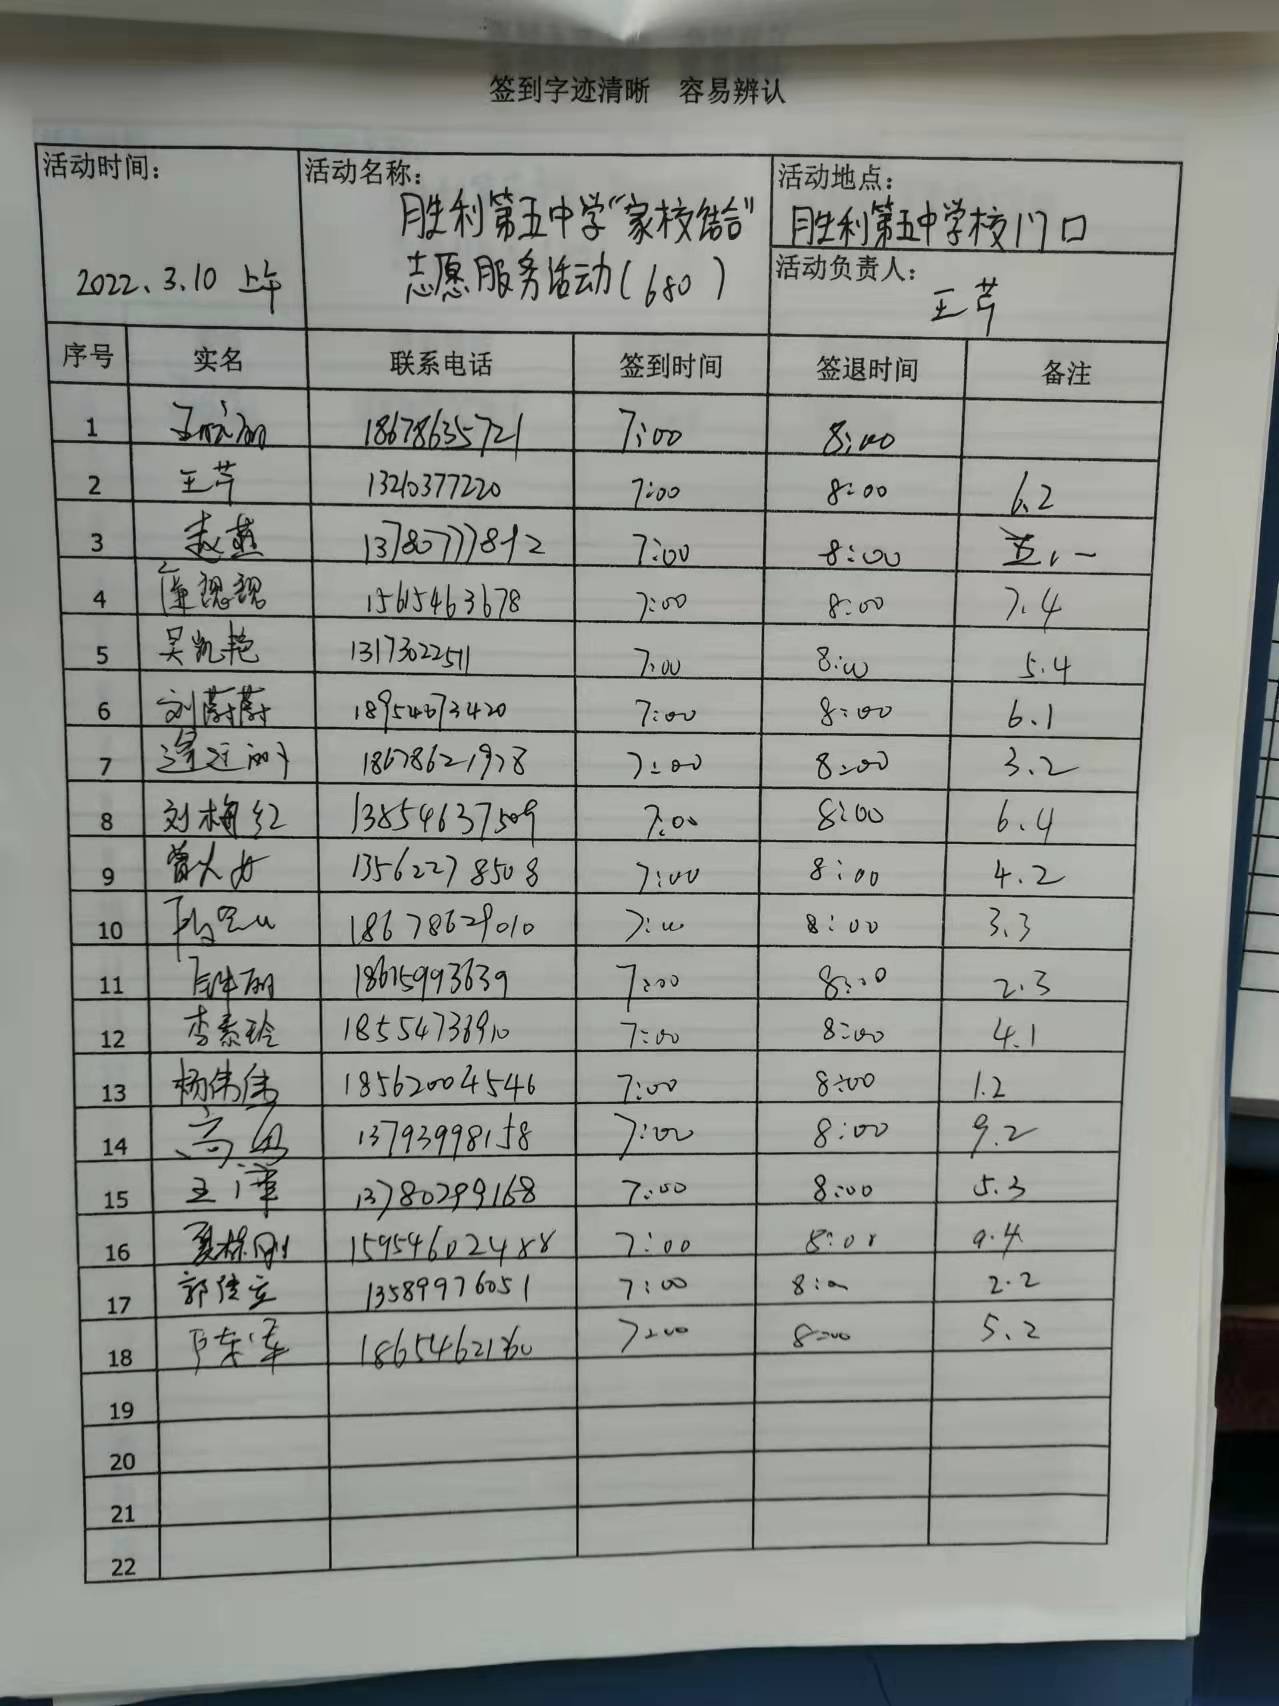 签到字迹清晰 容易辨认
活动时间:
2022.3.10 上午
活动名称:
胜利第五中学"家校结合"
志愿服务活动(680)
活动地点:
胜利第五中学校门口
活动负责人:
王芹
序号 实名 联系电话 签到时间 签退时间 备注
1 18678635721 7:00 8:00
2 王芹 13210377220 7:00 8:00 6.2
3 赵燕 13780777892 7:00 8:00 五.一
4 15615463678 7:00 8:00 7.4
5 吴凯艳 13173022511 7:00 8:00 5.4
6 刘蔚蔚 18954673420 7:00 8:00 6.1
7 18678621978 7:00 8:00 3.2
8 刘梅红 13854637509 7:00 8:00 6.4
9 13562278508 7:00 8:00 4.2
10 18678629010 7:00 8:00 3.3
11 18615993639 7:00 8:00 2.3
12 李素玲 7:00 8:00 4.1
13 杨伟伟 18562004546 7:00 8:00 1.2
14 13793998158 7:00 8:00 9.2
15 13780299168 7:00 8:00 5.3
16 15954602488 7:00 8:00 9.4
17 13589976051 7:00 8:00 2.2
18 7:00 8:00 5.2
19
20
21
22